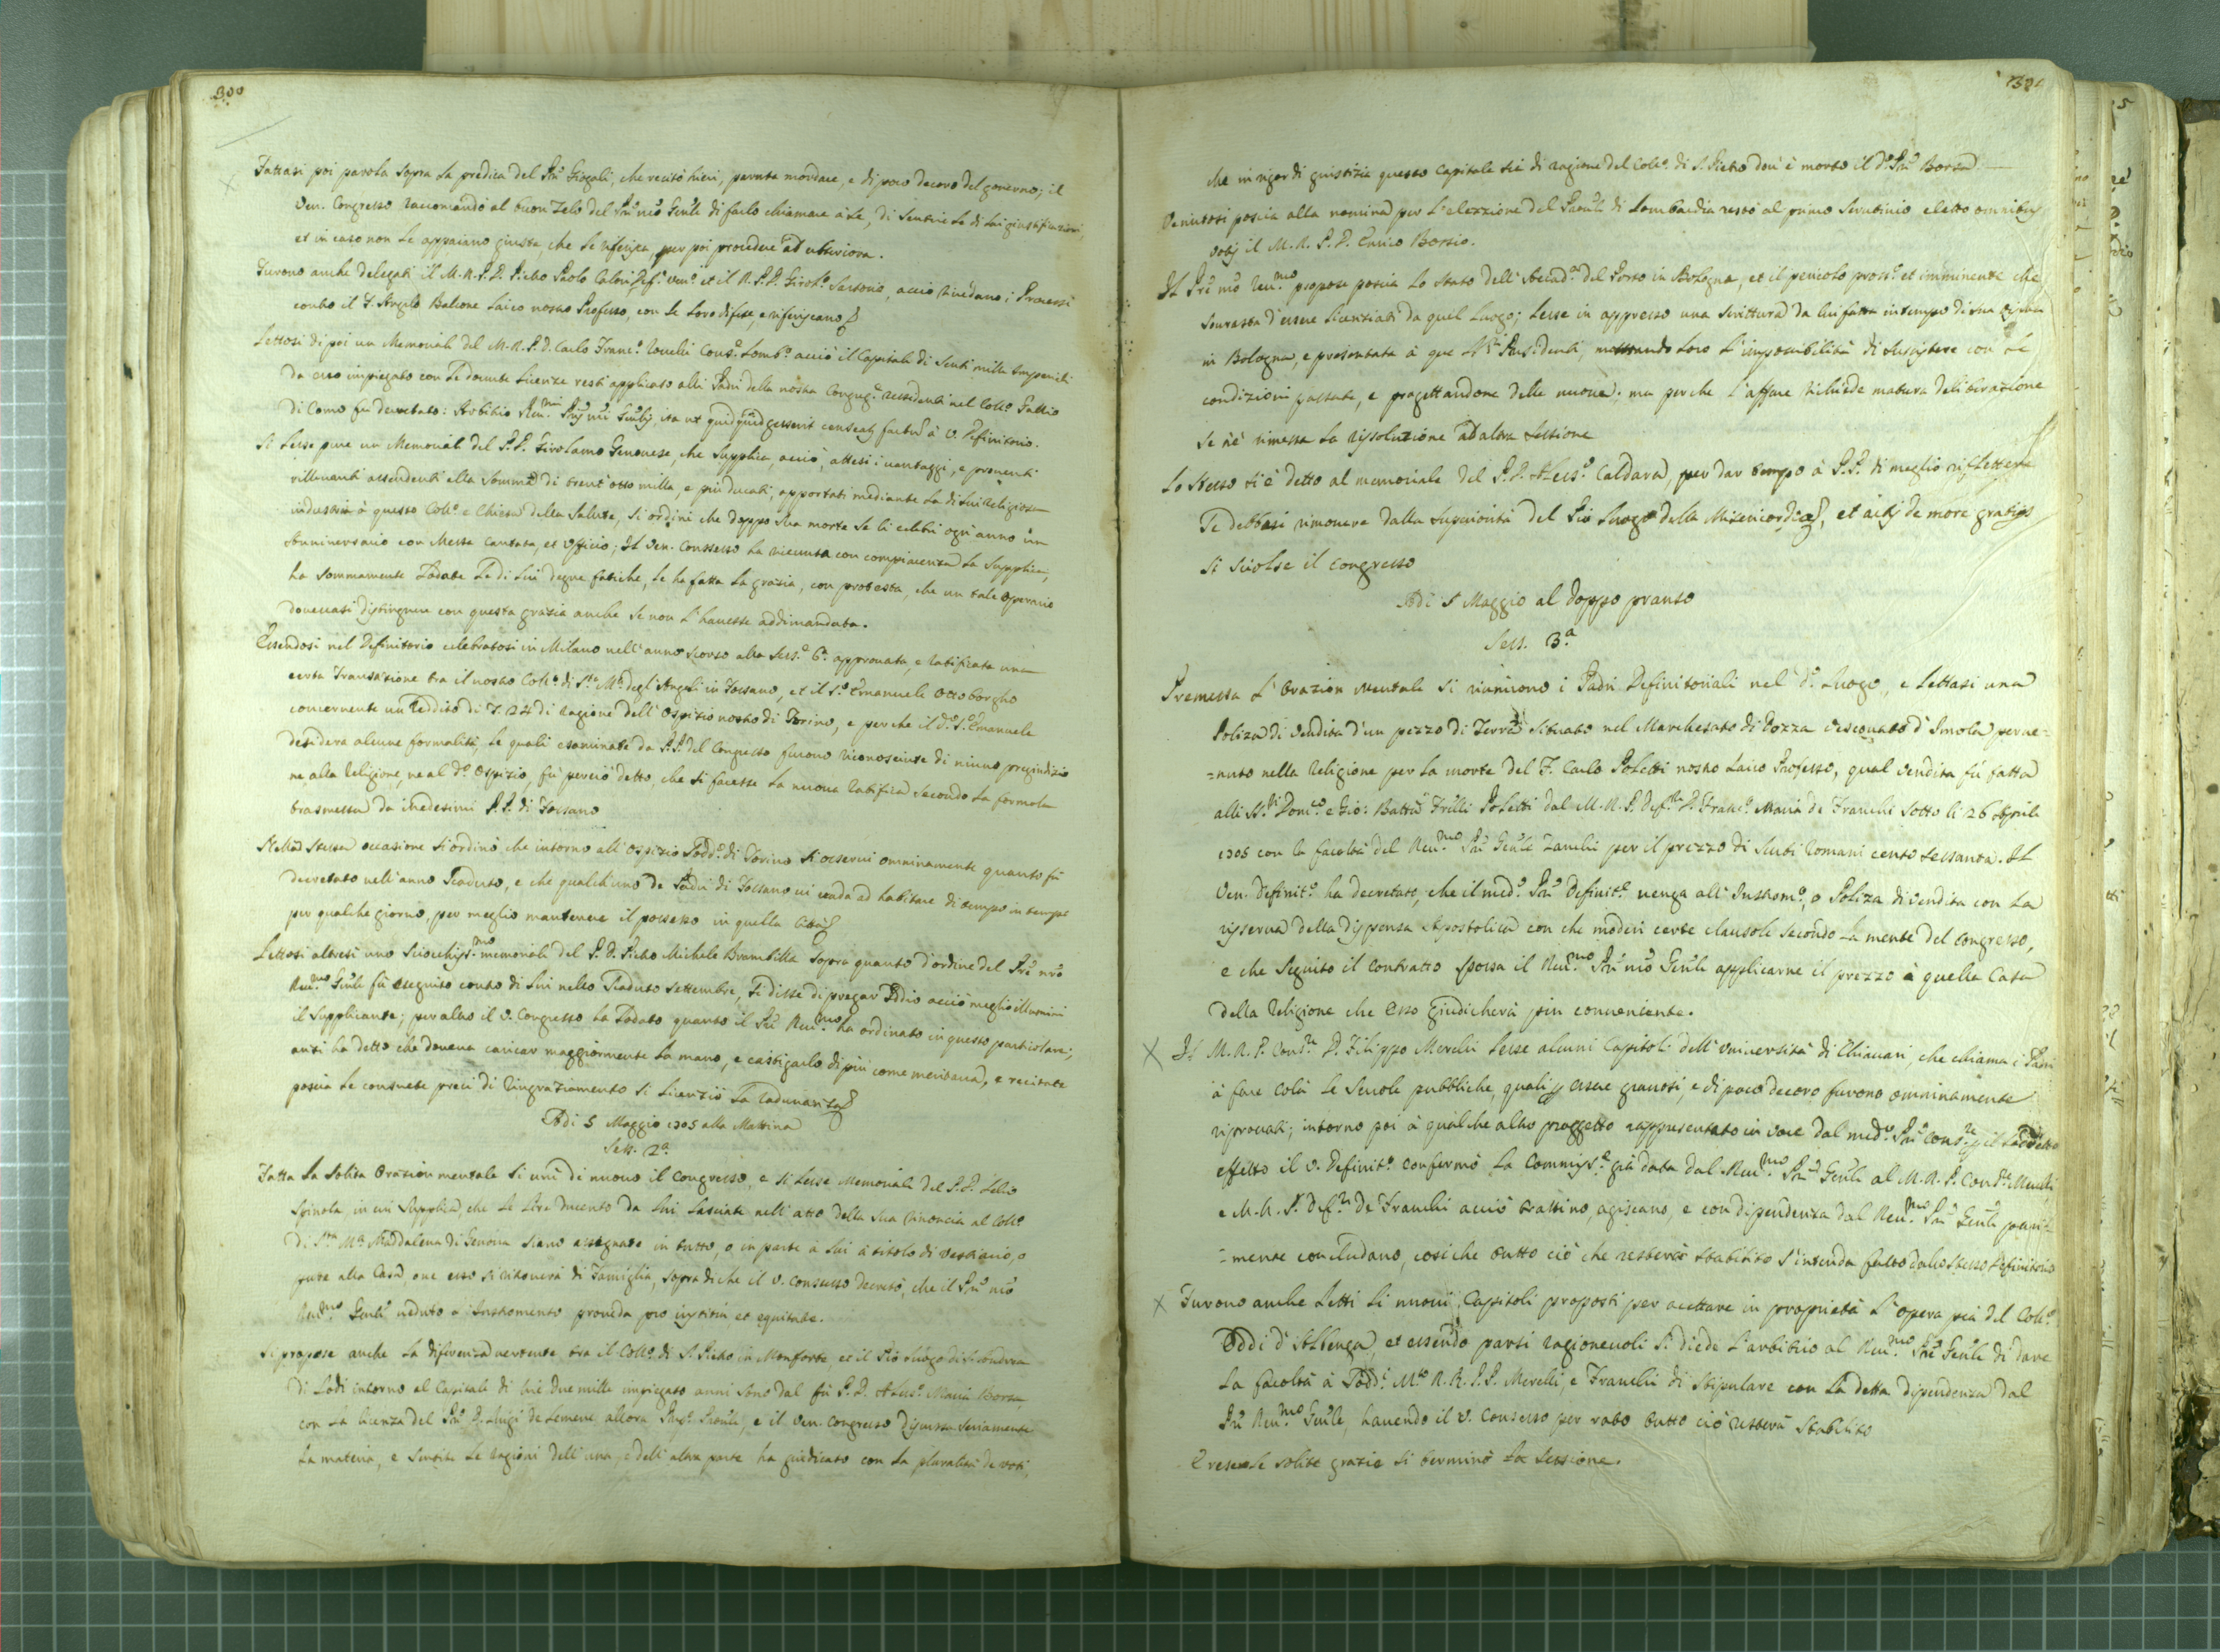 300
Fattasi poi parola sopra la predica del Prē Grogali, che recitò hieri, paruta mordace, e di poco decoro del governo; il
Ven. Congresso raccomandò al buon zelo del Prē nrō Genle di farlo chiamare à sè, di sentire le di lui giustificazioni,
et in caso non le appaiano giuste, che le riferisca, per poi procedere ad ulteriora.
Furono anche delegati il M.R.P.D. Pietro Paolo Caloni Def.e Ven.o et il R.P.D. Girol.o Sartorio, acciò rivedano i Processi
contro il F. Angelo Balione Laico nostro Professo, con le loro difese, e riferiscano
Lettosi di poi un Memoriale del M.R.P.D. Carlo Franc.o Rovelli Cons.e Lomb.o acciò il Capitale di Scuti mille Imperiali
da esso impiegato con le dovute licenze resti applicato alli Padri della nostra Congreg.e residenti nel Coll.o Gallio
di Como fù decretato: Arbitrio Rev.mi Prīs nrī Genlīs, ita ut quidquid gesserit censeatur factum à V. Definitorio.
Si lesse pure un Memoriale del P.D. Girolamo Genovese, che supplica, acciò, attesi i vantaggi, e proventi
rillevanti ascendenti alla somma di trent'otto milla, e più ducati, apportati mediante la di lui Religiosa
industria à questo Coll.o e Chiesa della Salute, si ordini che doppo sua morte se li celebri ogn'anno un
Anniversario con Messa cantata, et officio; Il Ven. Consesso ha ricevuta con compiacenza la supplica,
ha sommamente lodate le di lui degne fatiche, le ha fatta la grazia, con protesta, che un tale operario
dovevasi distinguere con questa grazia anche se non l'havesse addimandata.
Essendosi nel Definitorio celebratosi in Milano nell'anno scorso alla Sess.e 6.a approvata, e ratificata una
certa Transazione tra il nostro Coll.o di S.ta M.a degl'Angeli in Fossano, et il S.r Emanuele Ottoborgho
concernente un Reddito di F. 24 di ragione dell'Ospizio nostro di Torino, e perche il d.o S.r Emanuele
desidera alcune formalità, le quali esaminate da P.P. del Congresso furono riconosciute di niuno pregiudizio
ne alla Religione, ne al d.o Ospizio, fù perciò detto, che si facesse la nuova ratifica secondo la formola
trasmessa da medesimi P.P. di Fossano
Nella stessa occasione si ordinò che intorno all'Ospizio sodd.o di Torino si osservi omninamente quanto fù
decretato nell'anno scaduto, e che qualch'uno de Padri di Fossano vi vada ad habitare di tempo in tempo
per qualche giorno, per meglio mantenere il possesso in quella Città
Lettosi altresì uno sciocchiss.mo memoriale del P.D. Pietro Michele Brambilla sopra quanto d'ordine del Prē nrō
Rev.mo Genle fù eseguito contro di lui nello scaduto settembre, si disse di pregar Iddio acciò meglio illumini
il supplicante; per altro il V. Congresso ha lodato quanto il Prē Rev.mo ha ordinato in questo particolare;
anzi ha detto che doveva caricar maggiormente la mano, e castigarlo di più come meritava, e recitate
poscia le consuete preci di ringraziamento si licenziò la radunanza
Adi 5 Maggio 1705 alla Mattina
Sess. 2.a
Fatta la solita orazion mentale si unì di nuovo il Congresso, e si lesse Memoriale del P.D. Lelio
Spinola in cui supplica, che le Lire ducento da lui lasciate nell'atto della sua rinoncia al Coll.o
di S.ta M.a Maddalena di Genova siano assegnate in tutto, o in parte à lui à titolo di vestiario, o
pure alla Casa, ove esso si ritroverà di Famiglia, sopra di che il V. Consesso decretò, che il Prē nrō
Rev.mo Genle veduto l'Instromento proveda pro iustitia, et equitate.
Si propose anche la diferenza vertente tra il Coll.o di S. Pietro in Monforte, et il Pio Luogo di
di Lodi intorno al Capitale di Lire due mille impiegato anni sono dal fù P.D. Aless.o Maria Borsa
con la licenza del Prē D. Luigi de Lemene, allora Prep.o Provle, e il Ven. Congresso discussa seriamente
la materia, e sentite le ragioni dell'una, e dell'altra parte ha giudicato con la pluralità de voti,
301
che in rigor di giustizia questo Capitale sia di ragione del Coll.o di S. Pietro dov'è morto il d.o Prē Borsa
Venutosi poscia alla nomina per l'elezzione del Provle di Lombardia restò al primo scrutinio eletto omnibus
votis il M.R.P.D. Enrico Borsio.
Il Prē nrō Rev.mo propose poscia lo stato dell'Accad.a del Porto in Bologna, et il pericolo pross.o et imminente che
sovrasta d'essere licenziati da quel luogo; lesse in appresso una scrittura da lui fatta in tempo di sua visita
in Bologna, e presentata à que SS.ri Presidenti, mostrando loro l'impossibilità di sussistere con le
condizioni passate, e progettandone delle nuove; ma perche l'affare richiede matura deliberazione
se n'è rimessa la rissoluzione ad altra sessione
Lo stesso si è detto al memoriale del P.D. Aless.o Caldara, per dar tempo à P.P. di meglio riflettere
se debbasi rimovere dalla superiorità del Pio Luogo della Misericordia, et actis de more gratiis
si sciolse il congresso
Adi 5 Maggio al doppo pranso
Sess. 3.a
Premessa l'Orazion mentale si riunirono i Padri Definitoriali nel d.o Luogo, e lettasi una
Poliza di vendita d'un pezzo di Terra situato nel Marchesato di Bozza Vescovato d'Imola perve=
=nuto nella Religione per la morte del F. Carlo Poletti nostro Laico Professo, qual vendita fù fatta
alli SS.ri Dom.co e Gio: Batta Frilli Poletti dal M.R.P. Def.re D. Franc.o Maria de Franchi sotto li 26 Aprile
1705 con la facoltà del Rev.mo Prē Genle Zanchi per il prezzo di Scuti Romani cento sessanta. Il
Ven. Definit.o ha decretato, che il med.o Prē Definit.e venga all'Instrom.o, o Poliza di vendita con la
risserva della dispensa Apostolica con che moderi certe clausole secondo la mente del Congresso,
e che seguito il contratto possa il Rev.mo Prē nrō Genle applicarne il prezzo à quella Casa
della Religione che esso giudicherà più conveniente.
X Il M.R.P. Cons.re D. Filippo Merelli lesse alcuni Capitoli dell'Università di Chiavari, che chiama i Padri
à fare colà le scuole pubbliche, quali per essere gravosi, e di poco decoro furono omninamente
riprovati; intorno poi à qualche altro progetto rappresentato in voce dal med.o Prē Cons.re
effetto il V. Definit.o confermò la Commiss.e già data dal Rev.mo Prē Genle al M.R.P. Cons.re Merelli
e M.R.P. Def.re De Franchi acciò trattino, agiscano, e con dipendenza dal Rev.mo Prē Genle pari=
=mente concludano, cosi che tutto ciò che resterà stabilito s'intenda fatto dallo stesso Definitorio
X Furono anche letti li nuovi Capitoli proposti per accettare in proprietà l'opera pia del Coll.o
Oddi d'Albenga, et essendo parsi ragionevoli si diede l'arbitrio al Rev.mo Prē Genle di dare
la facoltà à sodd.i M.to R.R.P.P. Merelli, e Franchi di stipulare con la detta dipendenza dal
Prē Rev.mo Genle, havendo il V. Consesso per rato tutto ciò resterà stabilito
E rese le solite grazie si terminò la sessione.